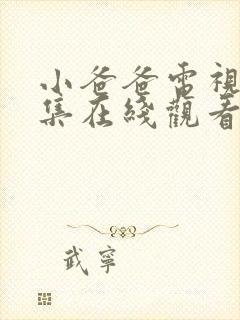 小爸爸電視
集在綫觀看
武寧